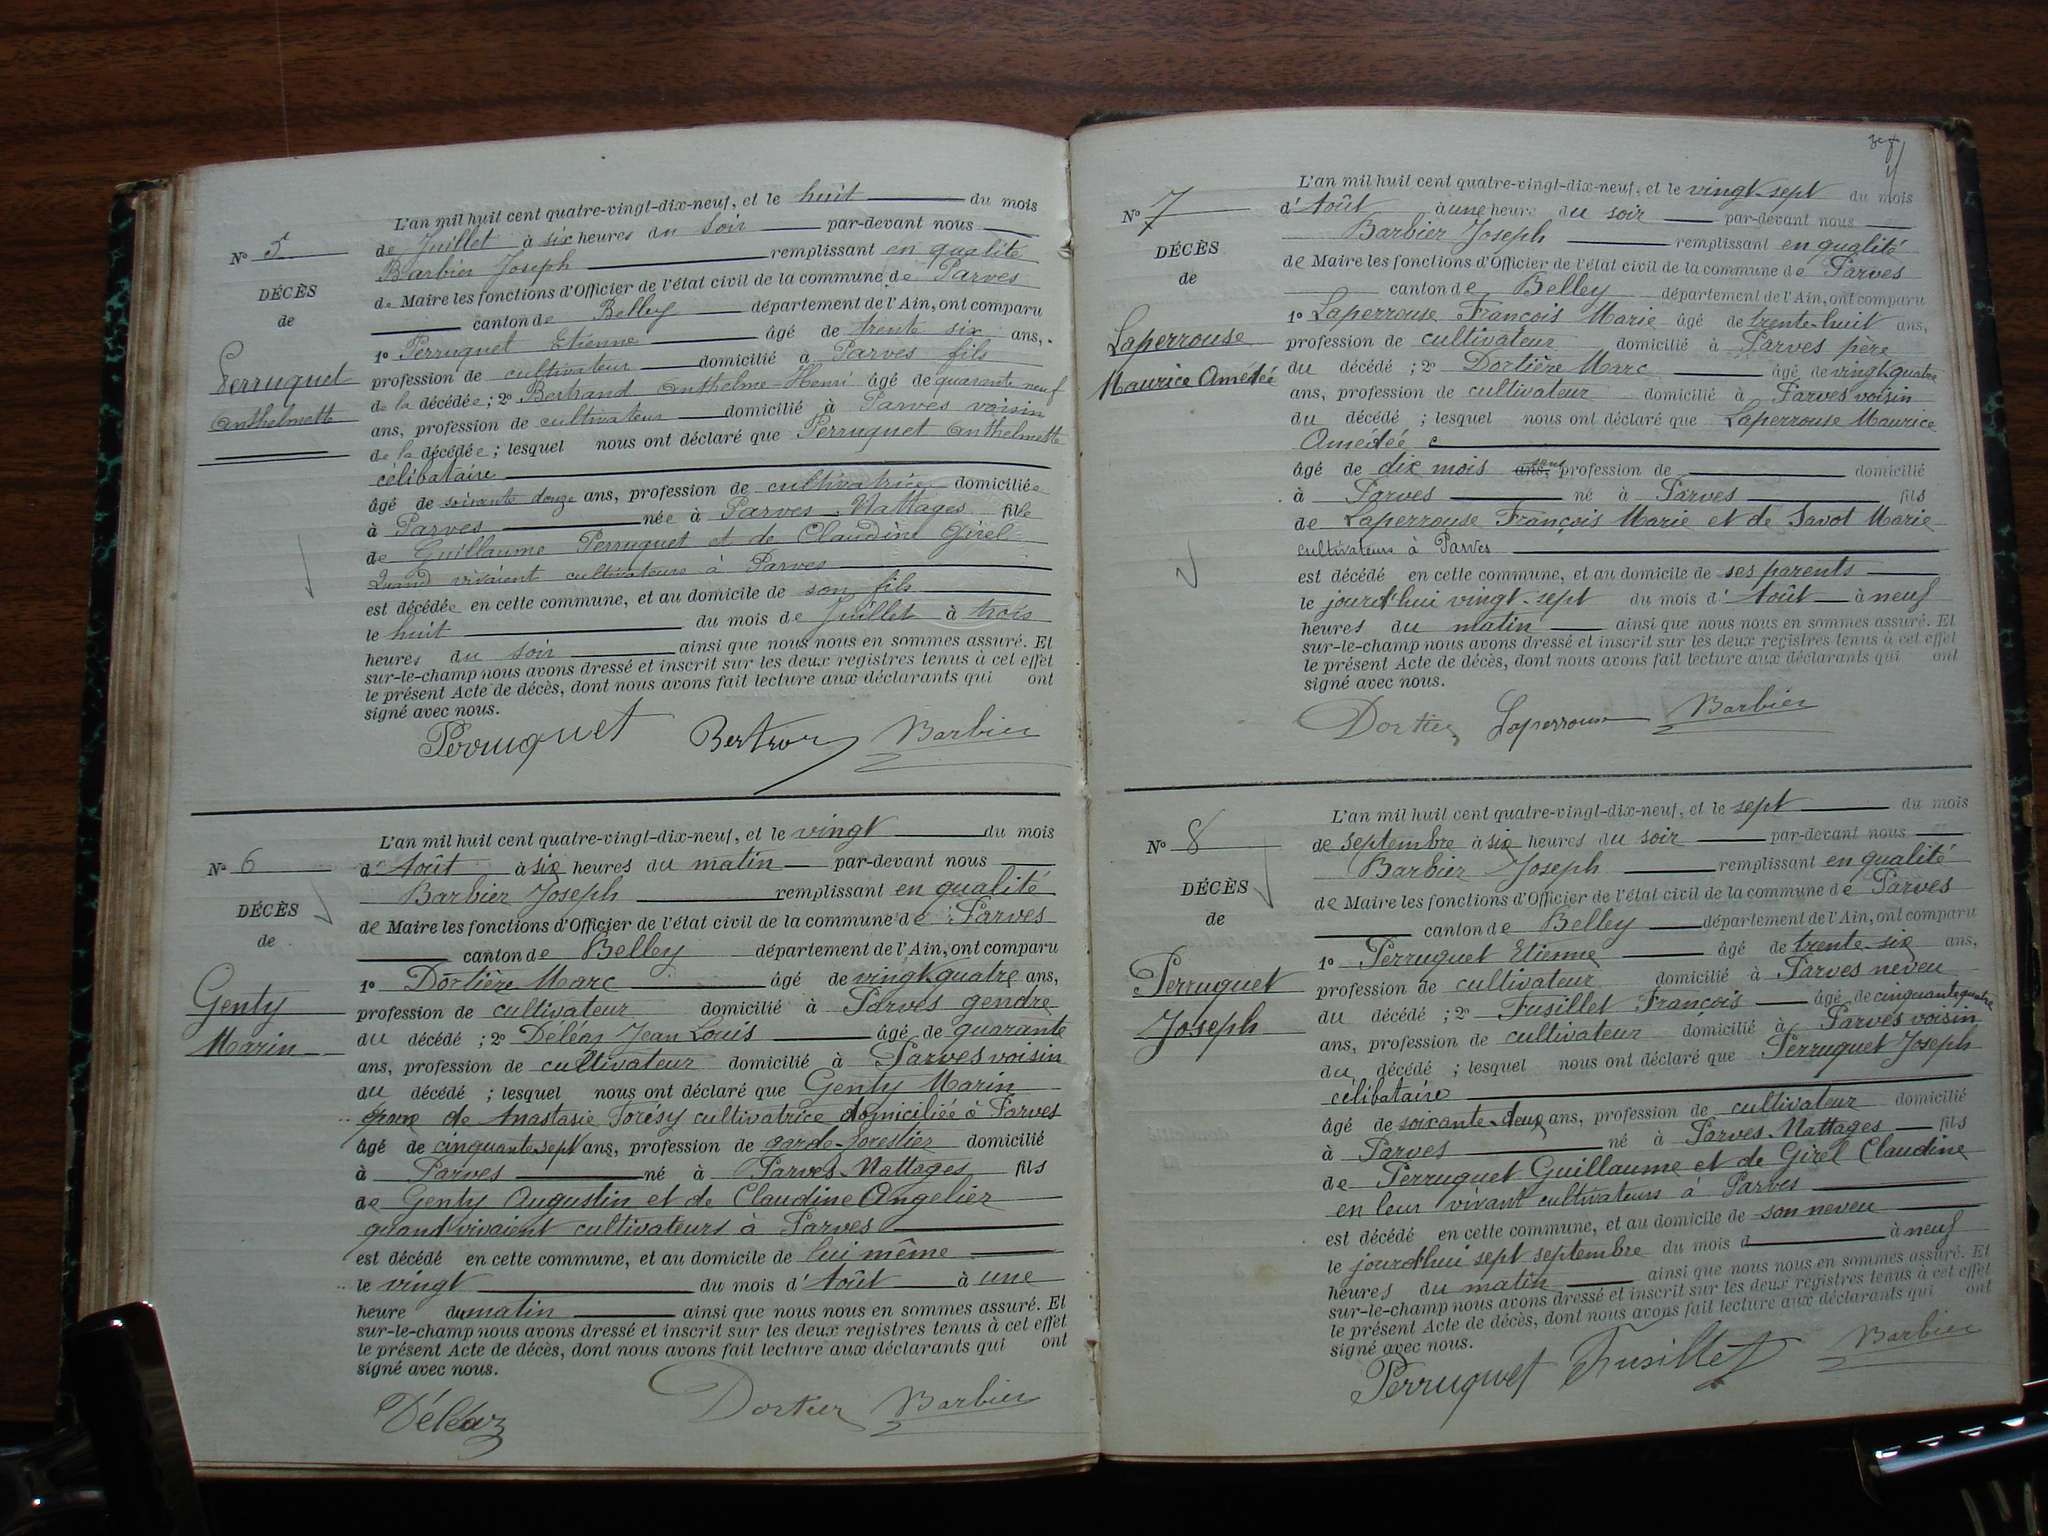 L'an mil huit cent quatre-vingt-dix-neuf, et le huit du mois
de Juillet à six heures du soir par-devant nous
Barbier Joseph remplissant en qualité
de Maire les fonctions d'Officier de l'état civil de la commune de Parves
canton de Belley département de l'Ain, ont comparu
1o Perruquet Etienne âgé de trente six ans,
profession de cultivateur domicilié à Parves fils
de la décédée ; 2o Bertrand Anthelme-Henri âgé de quarante neuf
ans, profession de cultivateur domicilié à Parves voisin
de la décédée ; lesquel nous ont déclaré que Perruquet Anthelmette
célibataire
âgé de soixante douze ans, profession de cultivatrice domiciliée
à Parves née à Parves-Nattages fille
de Guillaume Perruquet et de Claudine Girel
Quand vivaient cultivateurs à Parves
est décédée en cette commune, et au domicile de son fils
le huit du mois de Juillet à trois
heures du soir ainsi que nous nous en sommes assuré. Et
sur-le-champ nous avons dressé et inscrit sur les deux registres tenus à cet effet
le présent Acte de décès, dont nous avons fait lecture aux déclarants qui ont
signé avec nous.
No 5
DÉCÈS
de
Perruquet
Anthelmette
Perruquet Bertrand Barbier
L'an mil huit cent quatre-vingt-dix-neuf, et le vingt du mois
d'Août à six heures du matin par-devant nous
Barbier Joseph remplissant en qualité
de Maire les fonctions d'Officier de l'état civil de la commune de Parves
canton de Belley département de l'Ain, ont comparu
1o Dortière Marc âgé de vingt-quatre ans,
profession de cultivateur domicilié à Parves gendre
du décédé ; 2o Déléaz Jean Louis âgé de quarante
ans, profession de cultivateur domicilié à Parves voisin
du décédé ; lesquel nous ont déclaré que Genty Marin
époux de Anastasie cultivatrice domiciliée à Parves
âgé de cinquante-sept ans, profession de garde-forestier domicilié
à Parves né à Parves-Nattages fils
de Genty Augustin et de Claudine Angelier
quand vivaient cultivateurs à Parves
est décédé en cette commune, et au domicile de lui même
le vingt du mois d'Août à une
heure du matin ainsi que nous nous en sommes assuré. Et
sur-le-champ nous avons dressé et inscrit sur les deux registres tenus à cet effet
le présent Acte de décès, dont nous avons fait lecture aux déclarants qui ont
signé avec nous.
No 6
DÉCÈS
de
Genty
Marin
Déléaz Dortier Barbier
L'an mil huit cent quatre-vingt-dix-neuf, et le vingt-sept du mois
d'Août à une heure du soir par-devant nous
Barbier Joseph remplissant en qualité
de Maire les fonctions d'Officier de l'état civil de la commune de Parves
canton de Belley département de l'Ain, ont comparu
1o Laperrouse François Marie âgé de trente-huit ans,
profession de cultivateur domicilié à Parves père
du décédé ; 2o Dortière Marc âgé de vingt-quatre
ans, profession de cultivateur domicilié à Parves voisin
du décédé ; lesquel nous ont déclaré que Laperrouse Maurice
Amédée
âgé de dix mois ans, sans profession de domicilié
à Parves né à Parves fils
de Laperrouse François Marie et de Savot Marie
cultivateurs à Parves
est décédé en cette commune, et au domicile de ses parents
le jourd'hui vingt-sept du mois d'Août à neuf
heures du matin ainsi que nous nous en sommes assuré. Et
sur-le-champ nous avons dressé et inscrit sur les deux registres tenus à cet effet
le présent Acte de décès, dont nous avons fait lecture aux déclarants qui ont
signé avec nous.
No 7
DÉCÈS
de
Laperrouse
Maurice Amédée
Dortier Laperrouse Barbier
L'an mil huit cent quatre-vingt-dix-neuf, et le sept du mois
de septembre à six heures du soir par-devant nous
Barbier Joseph remplissant en qualité
de Maire les fonctions d'Officier de l'état civil de la commune de Parves
canton de Belley département de l'Ain, ont comparu
1o Perruquet Etienne âgé de trente-six ans,
profession de cultivateur domicilié à Parves neveu
du décédé ; 2o Fusillet François âgé de cinquante quatre
ans, profession de cultivateur domicilié à Parves voisin
du décédé ; lesquel nous ont déclaré que Perruquet Joseph
célibataire
âgé de soixante-deux ans, profession de cultivateur domicilié
à Parves né à Parves-Nattages fils
de Perruquet Guillaume et de Girel Claudine
en leur vivant cultivateurs à Parves
est décédé en cette commune, et au domicile de son neveu
le jourd'hui sept septembre du mois d à neuf
heures du matin ainsi que nous nous en sommes assuré. Et
sur-le-champ nous avons dressé et inscrit sur les deux registres tenus à cet effet
le présent Acte de décès, dont nous avons fait lecture aux déclarants qui ont
signé avec nous.
No 8
DÉCÈS
de
Perruquet
Joseph
Perruquet Fusillet Barbier